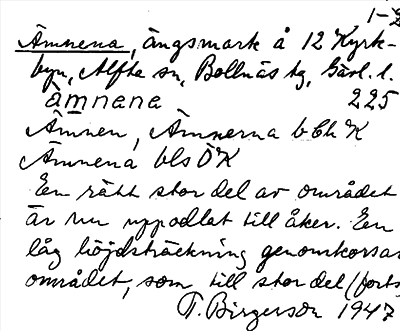 1-2
Ämnena, ängsmark å 12 Kyrk-
byn, Alfta sn, Bollnäs tg, Gävl. l.
àmnena 225
Ämnen, Ämnerna b Ch K
Ämnena bls ÖK
En rätt stor del av området
är nu uppodlat till åker. En
låg höjdsträckning genomkorsar
området, som till stor del (forts
T. Birgerson 1947